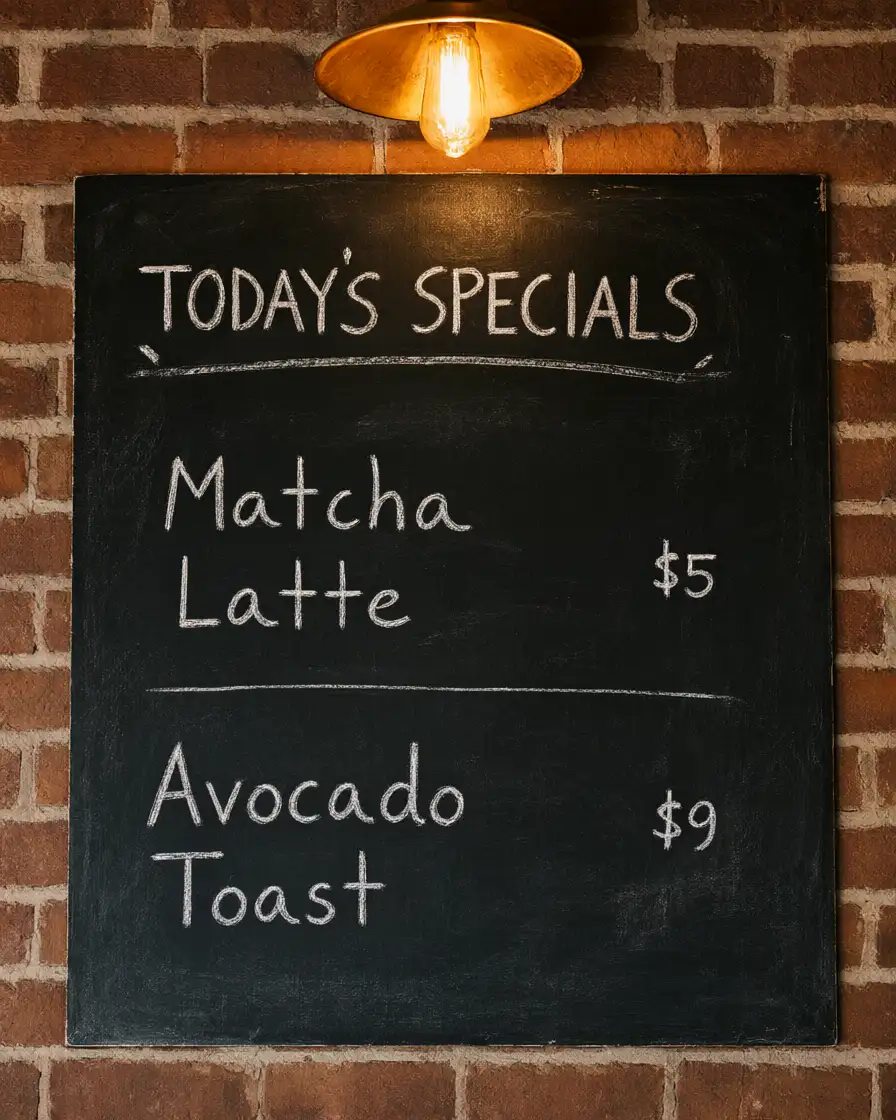 TODAY'S SPECIALS
Matcha
Latte $5
Avocado
Toast $9